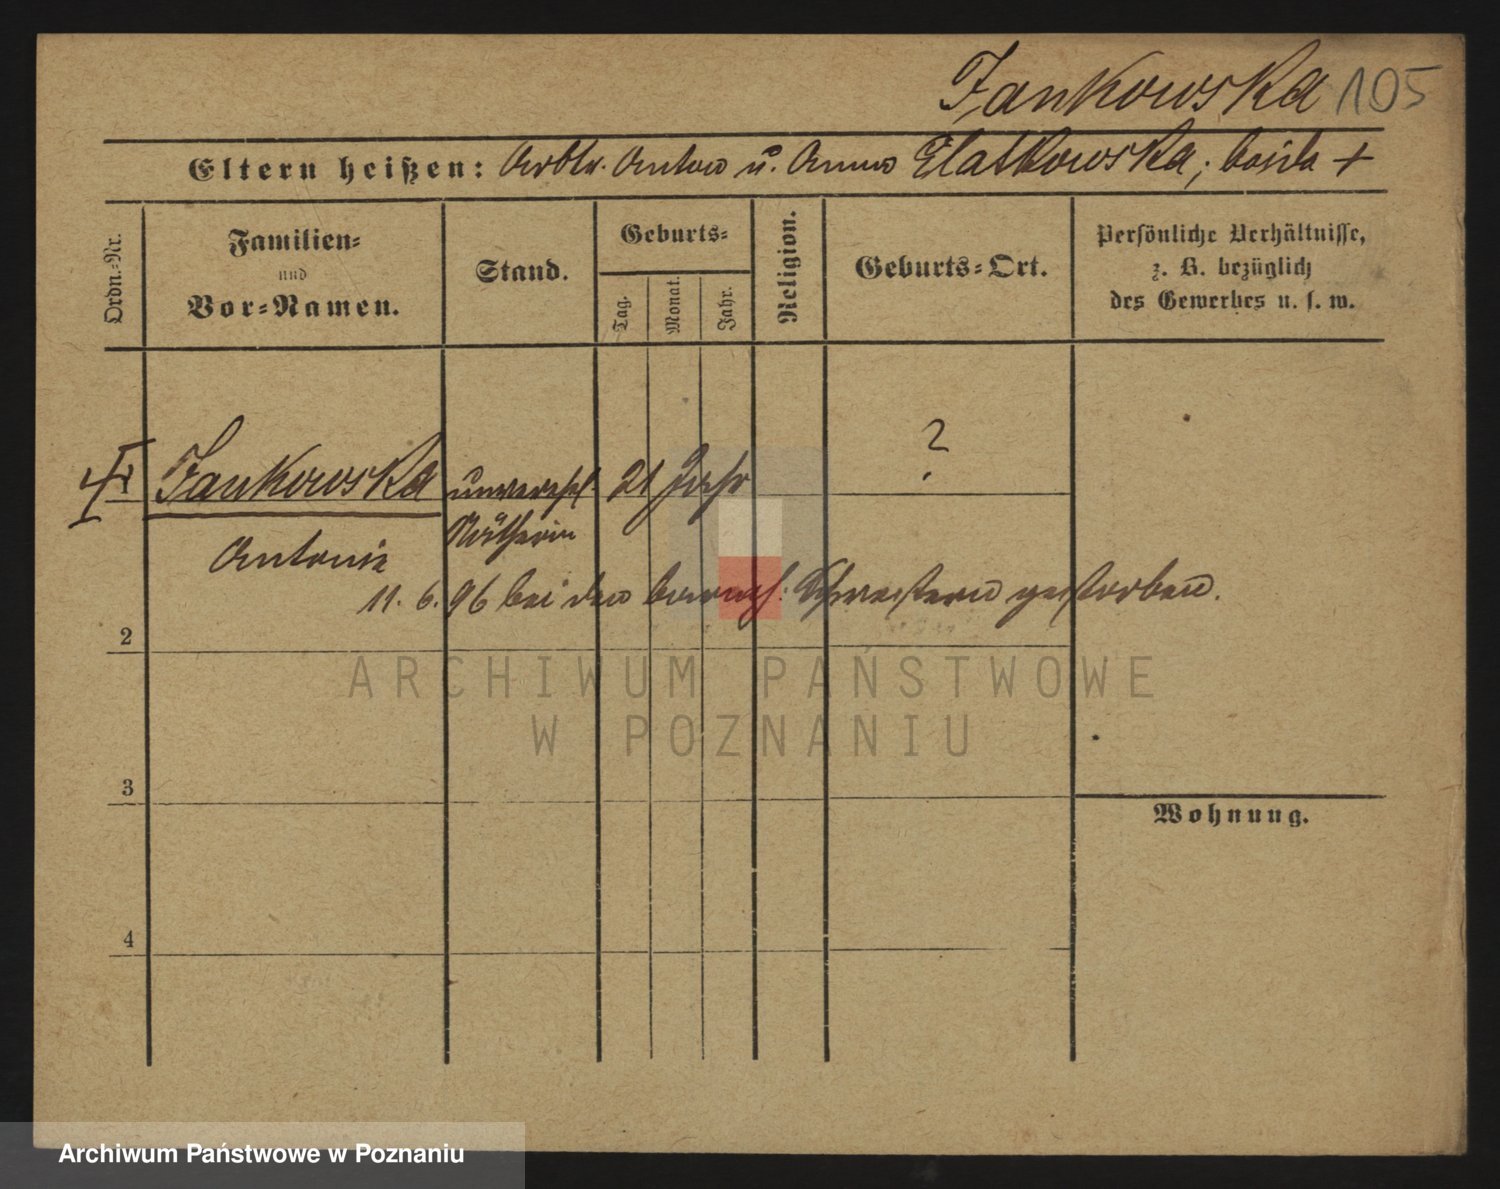 Jankowska 105
Eltern heißen: Arbtr. Anton u. Anna Glatkowska, beide +
Ordn.-Nr.
Familien-
und
Vor-Namen.
Stand.
Geburts-
Tag.
Monat.
Jahr.
Religion.
Geburts-Ort.
Persönliche Verhältnisse,
z. B. bezüglich
des Gewerbes u. s. w.
?
Jankowska unverehel. 21 Jahr
Nätherin
Antonie
11. 6. 96 bei den barmh. Schwestern gestorben.
2
ARCHIWUM PAŃSTWOWE
W POZNANIU
3
Wohnung.
4
Archiwum Państwowe w Poznaniu